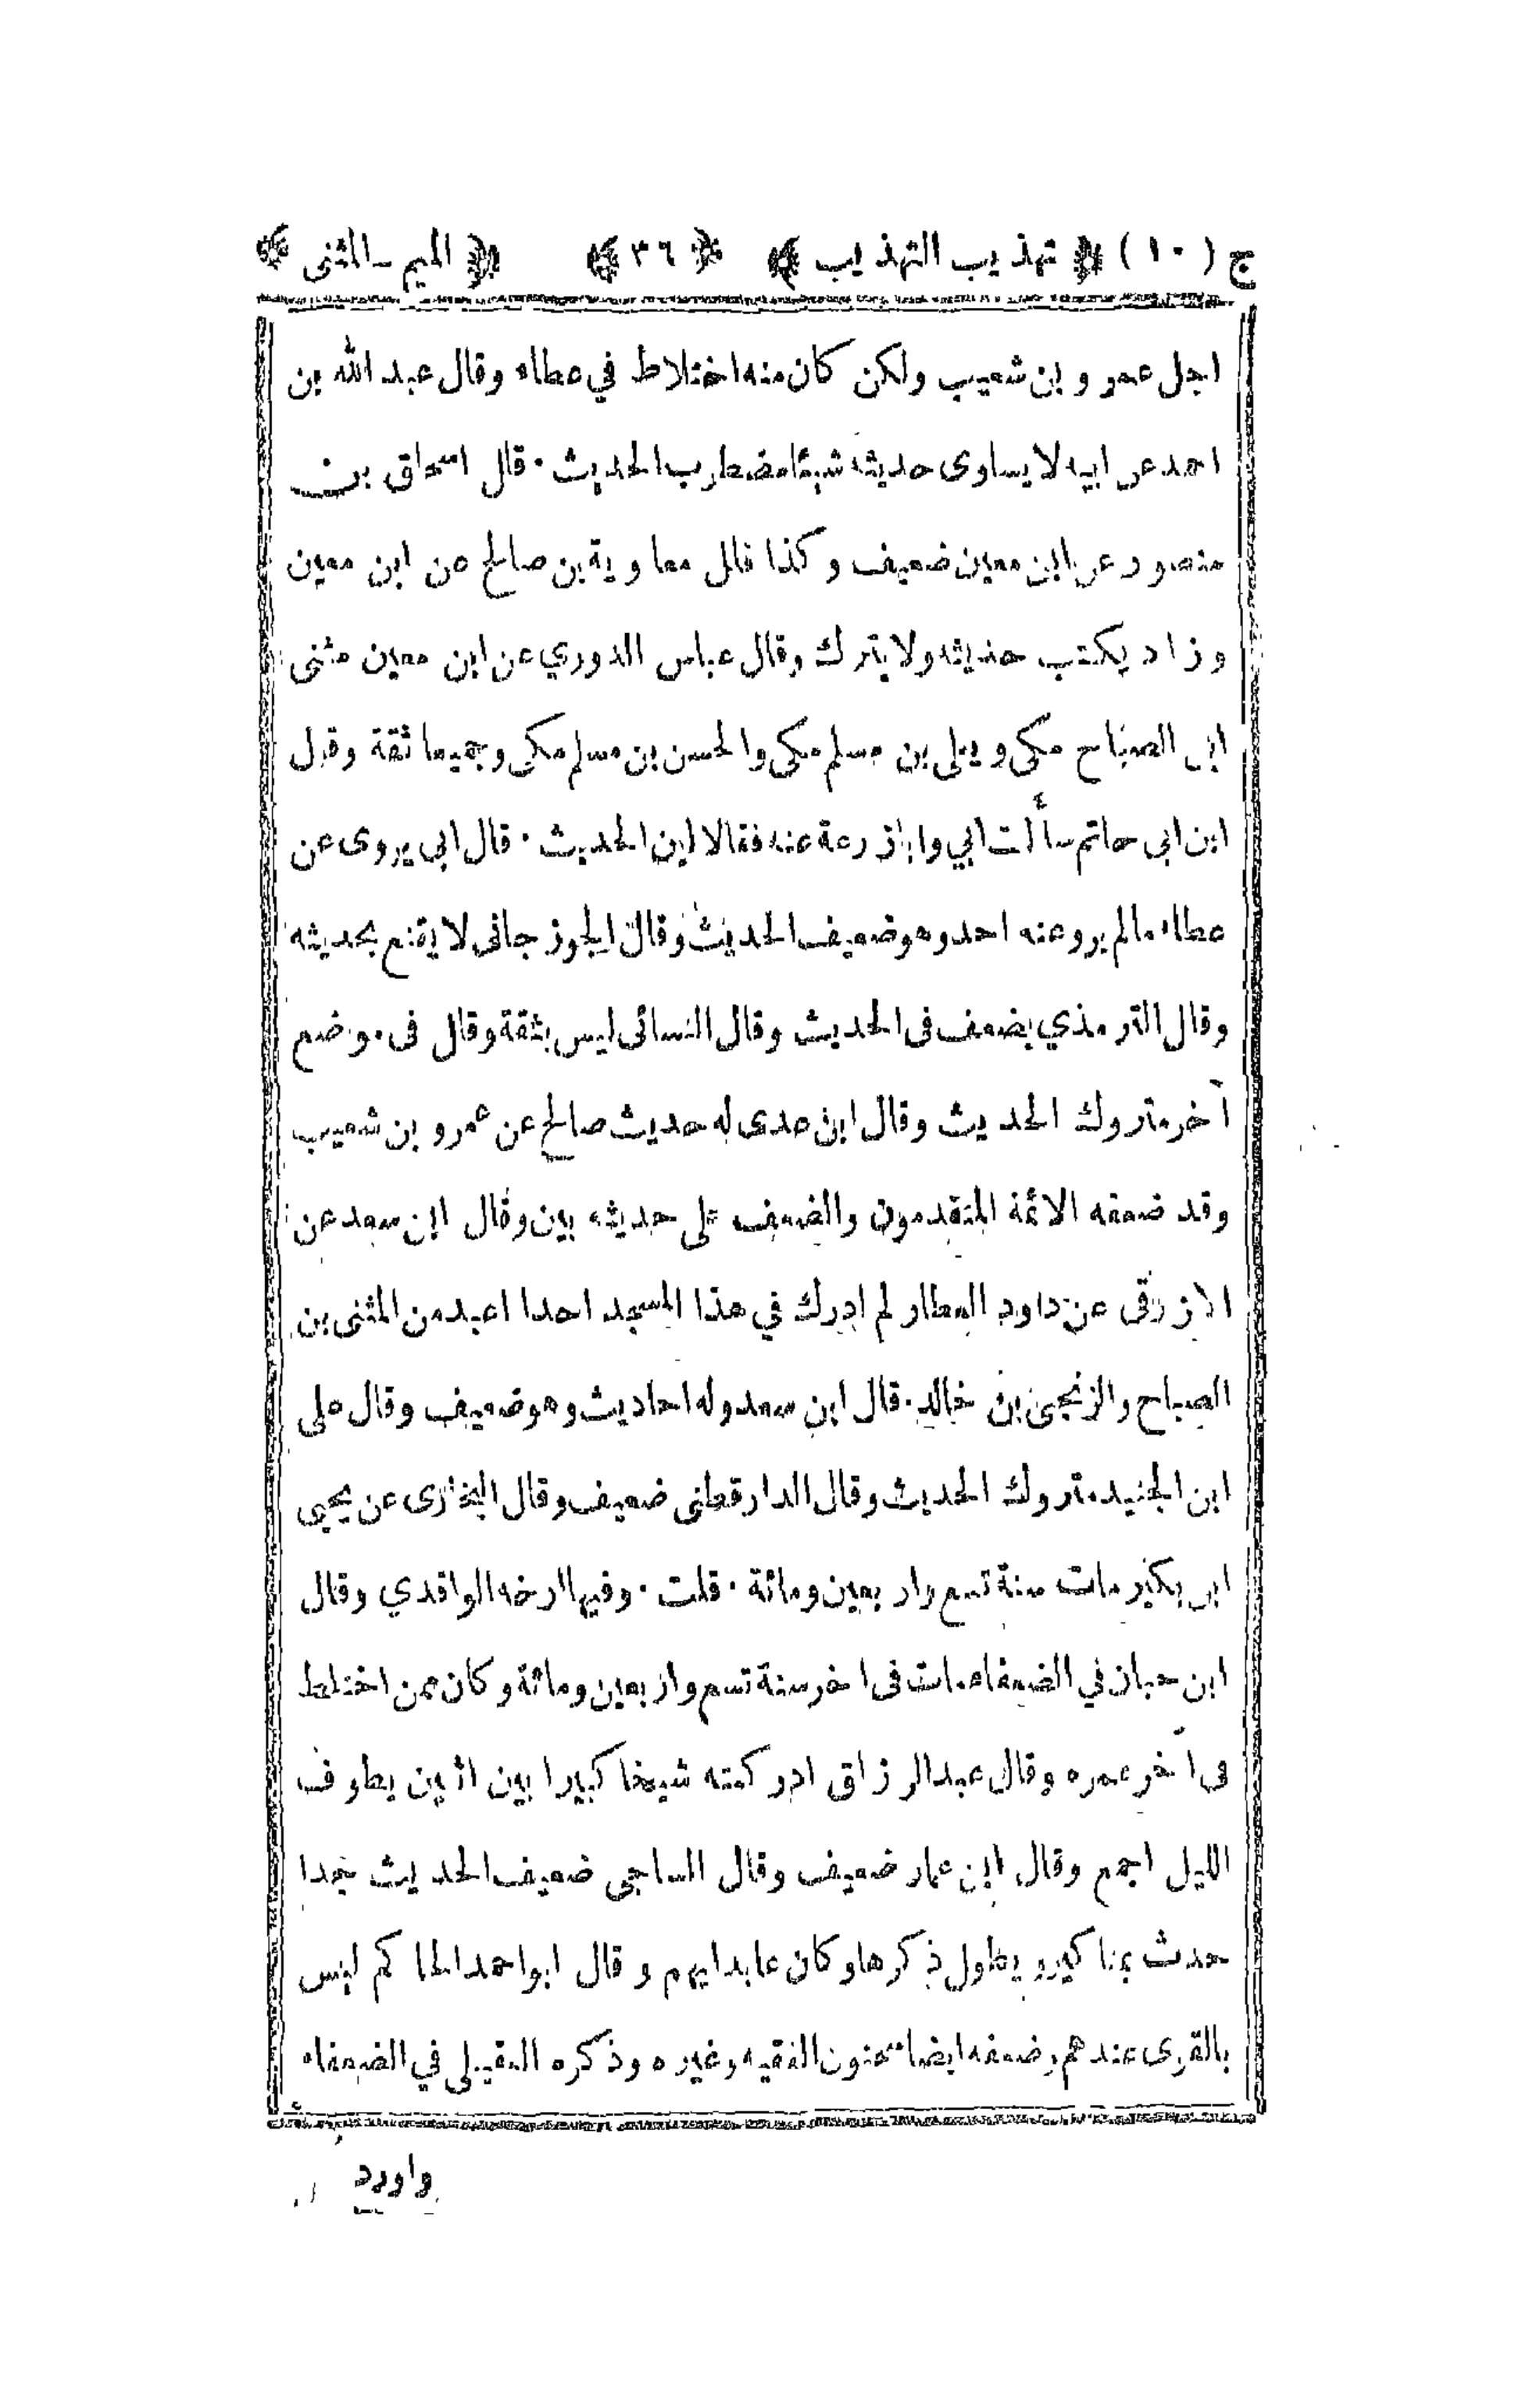 ج (١٠) ﴿ تهذيب التهذيب ﴾ ﴿ ٣٦ ﴾ ﴿ الميم ـ المثنى ﴾
اجل عمرو بن شعيب ولكن كان منه اختلاط في عطاء وقال عبد الله بن
احمد عن ابيه لا يساوى حديثه شيئا مضطرب الحديث ٠ قال اسحاق بن
منصور عن ابن معين ضعيف وكذا قال معاوية بن صالح عن ابن معين
وزاد يكتب حديثه ولا يترك وقال عباس الدوري عن ابن معين مثنى
ابن الصباح مكى ويعلى بن مسلم مكى والحسن بن مسلم مكى وجميعا ثقة وقال
ابن ابى حاتم سألت ابي وابا زرعة عنه فقالا لين الحديث ٠ قال ابى يروى عن
عطاء مالم يروعنه احد وهو ضعيف الحديث وقال الجوزجانى لا يقنع بحديثه
وقال الترمذي يضعف فى الحديث وقال النسائى ليس بثقة وقال فى موضع
آخر متروك الحديث وقال ابن عدى له حديث صالح عن عمرو بن شعيب
وقد ضعفه الائمة المتقدمون والضعف على حديثه بين وقال ابن سعد عن
الازرقى عن داود العطار لم ادرك في هذا المسجد احدا اعبد من المثنى بن
الصباح والزنجى بن خالد ٠ قال ابن سعد وله احاديث وهو ضعيف وقال على
ابن الجنيد متروك الحديث وقال الدارقطنى ضعيف وقال البخارى عن يحيى
ابن بكير مات سنة تسع واربعين ومائة ٠ قلت ٠ وفيها ارخه الواقدي وقال
ابن حبان في الضعفاء مات فى اخر سنة تسع واربعين ومائة وكان ممن اختلط
فى آخر عمره وقال عبد الرزاق ادركته شيخا كبيرا بين اثنين يطوف
الليل اجمع وقال ابن عمار ضعيف وقال الساجى ضعيف الحديث جدا
حدث بمناكير يطول ذكرها وكان عابدا يهم وقال ابو احمد الحاكم ليس
بالقوى عندهم وضعفه ايضا سحنون الفقيه وغيره وذكره العقيلى في الضعفاء
واورد